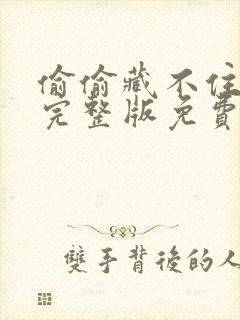 偷偷藏不住
完整版免費
雙手背後的人